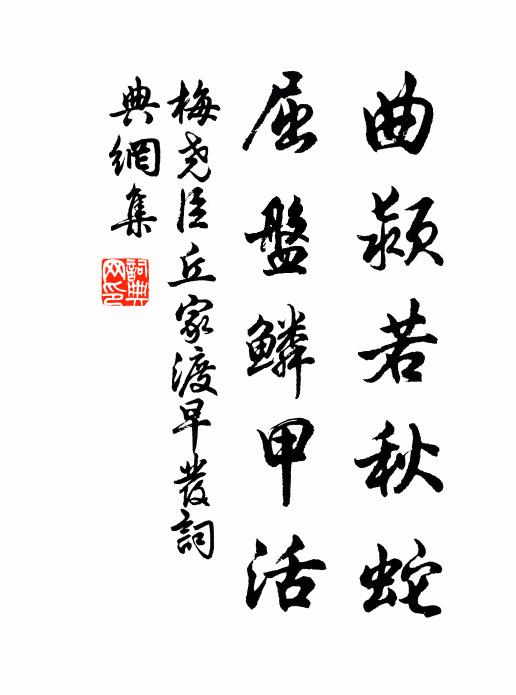 曲颍若秋蛇
屈盤鳞甲活
梅尧臣丘家渡早發詞
典網集
詞典网印